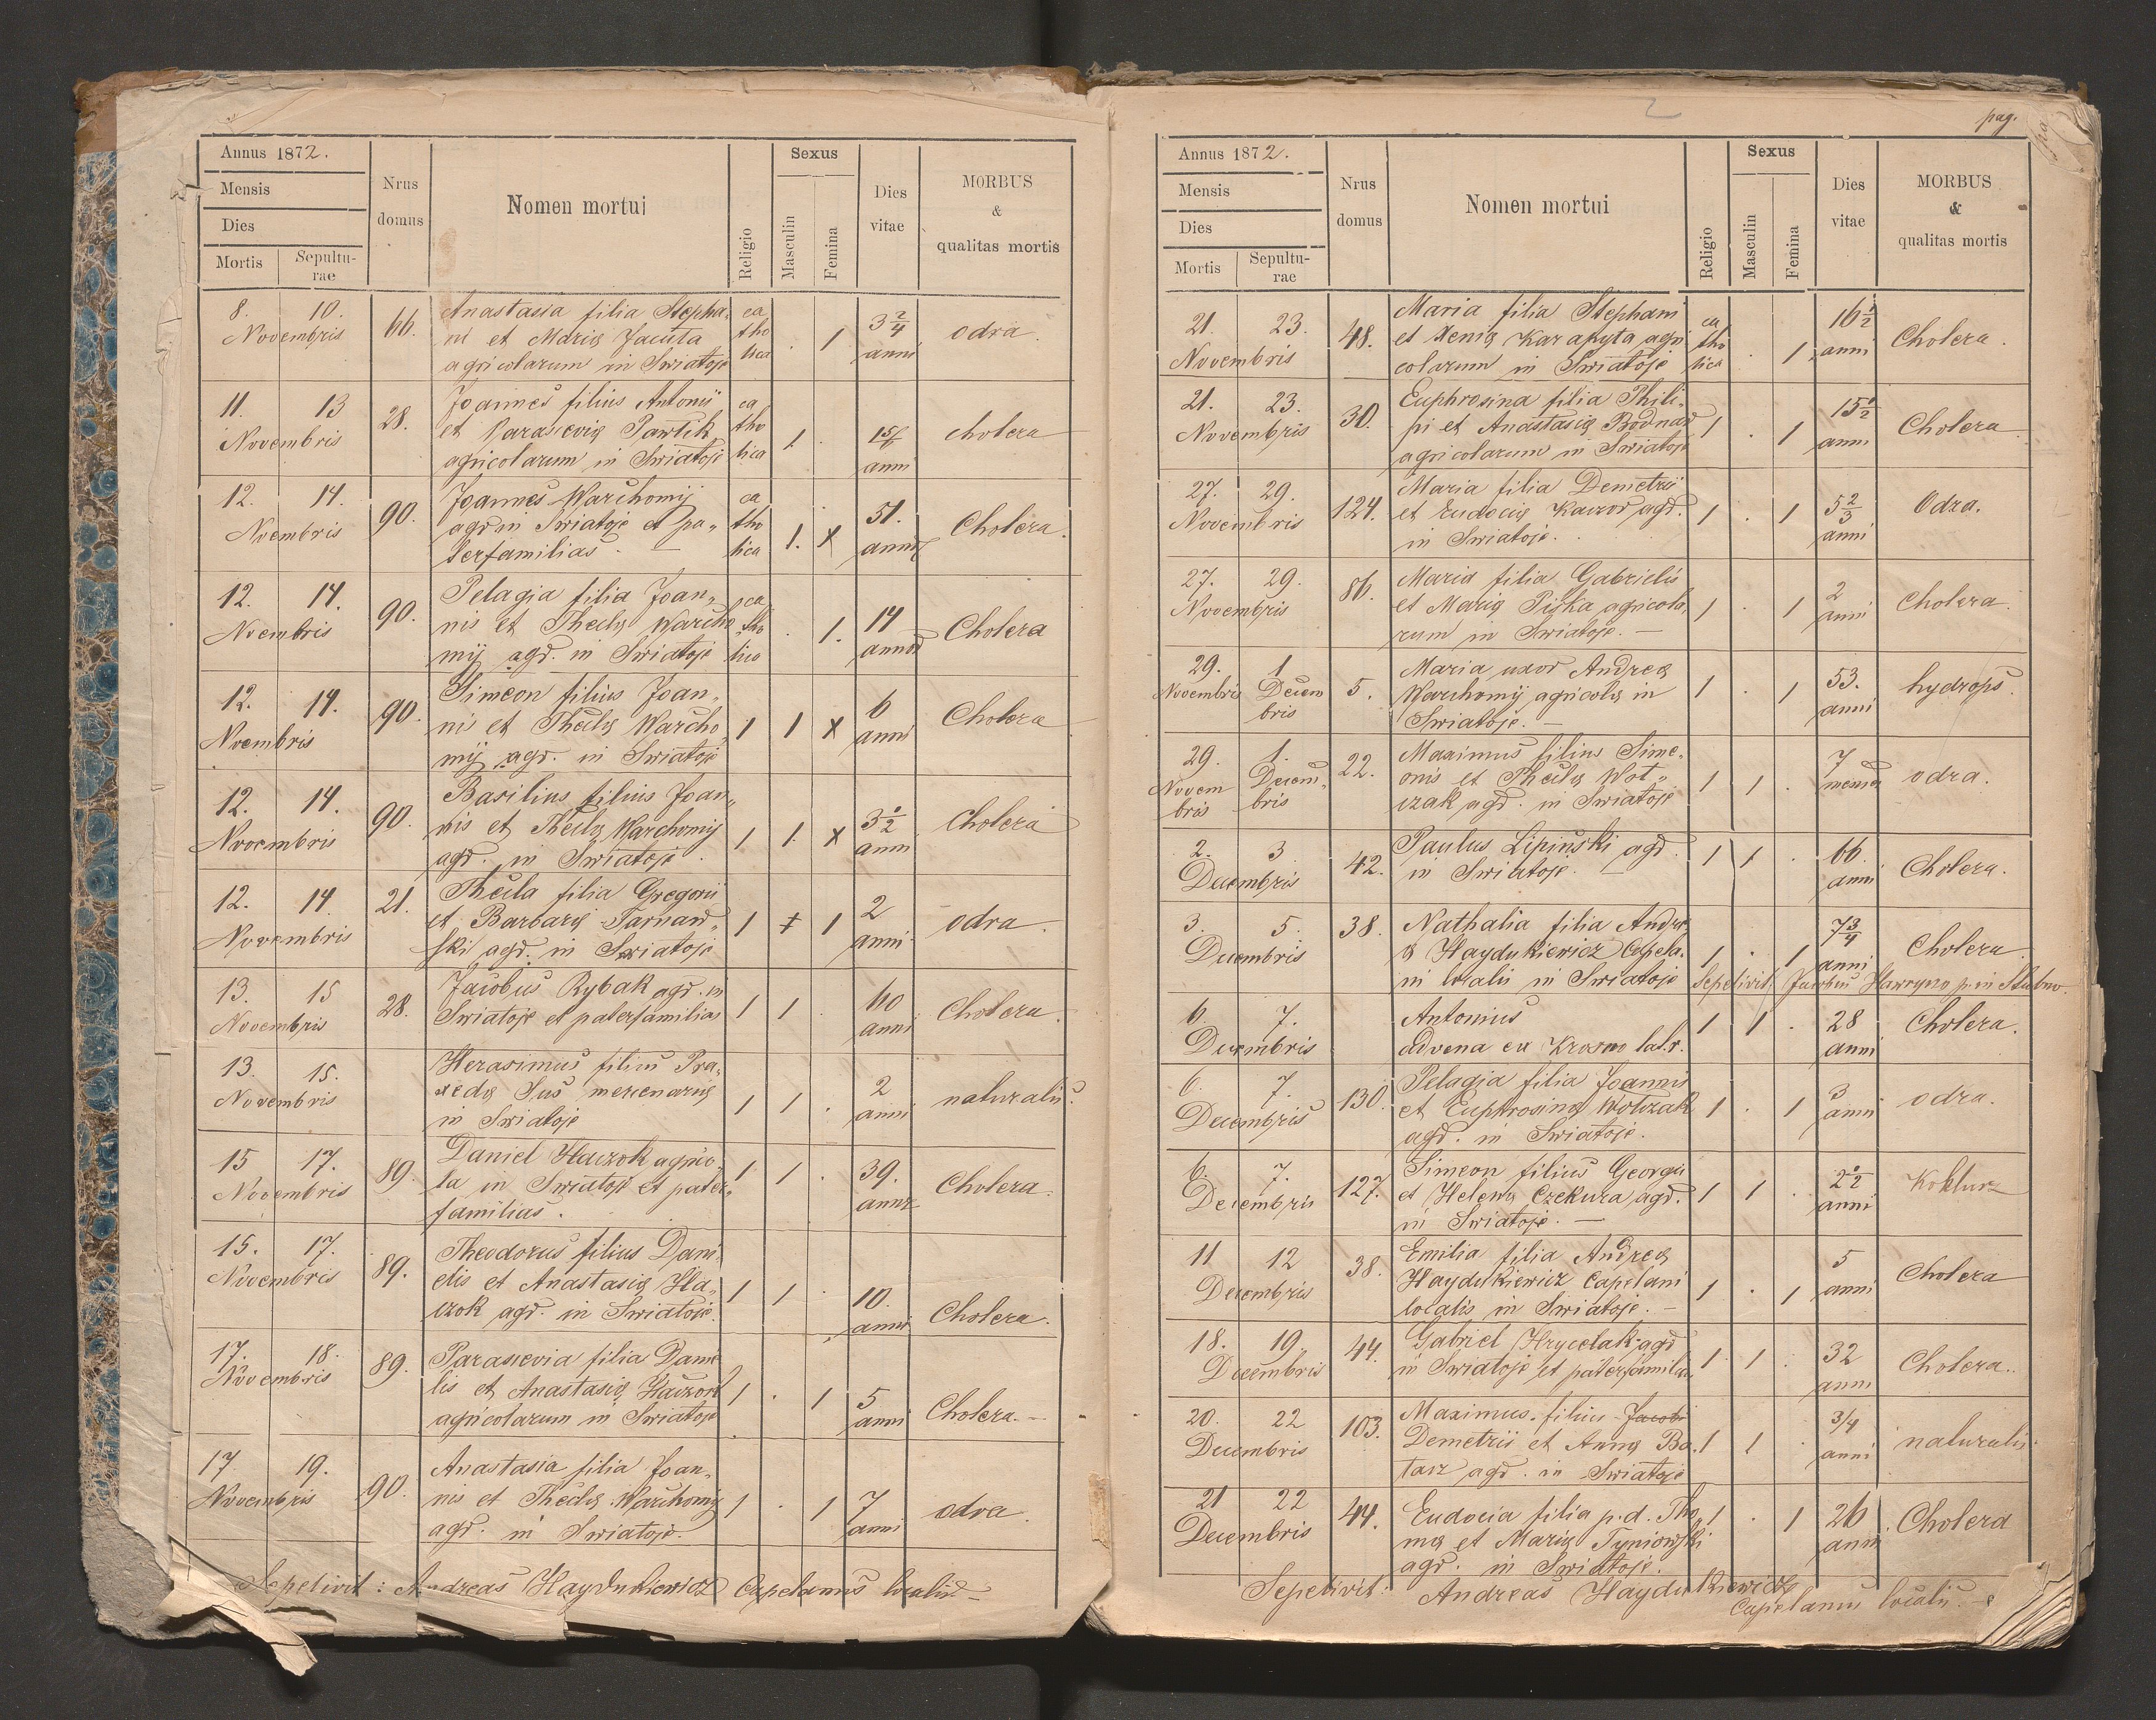 Annus 1872.
Mensis
Dies
Mortis
Sepultu-
rae
Nrus
domus
Nomen mortui
Religio
Sexus
Masculin
Femina
Dies
vitae
MORBUS
&
qualitas mortis
8. 10.
Novembris
66.
Anastasia filia Stepha„
ni et Mariæ Jacuta
agricolarum in Swiatoje
ca
tho
lica
. 1
3 2/4
anni
odra.
11. 13
Novembris
28.
Joannes filius Antonii
et Parasceviæ Pawlik
agricolarum in Swiatoje
ca
tho
lica
1 .
anni
cholera
12. 14.
Novembris
90.
Joannes Warchomij
agr. in Swiatoje et pa„
terfamilias. —
ca
tho
lica
1. x
51.
Cholera.
12. 14.
Novembris
90.
Pelagia filia Joan„
nis et Theclæ Warcho
mij agr. in Swiatoje
ca
tho
lica
. 1.
14
Cholera
12. 14.
Novembris
90.
Simeon filius Joan„
nis et Theclæ Warcho„
mij agr. in Swiatoje
1 1 x
6
anni
Cholera
12. 14.
Novembris
90.
Basilius filius Joan„
nis et Theclæ Warchomij
agr. in Swiatoje.
1 1. x
3 1/2
anni
Cholera
12. 14
Novembris
21.
Thecla filia Gregorii
et Barbaræ Tarnaw„
ski agr. in Swiatoje
1 x 1
2
anni
odra.
13. 15
Novembris
28.
Jacobus Rybak agr. in
Swiatoje et paterfamilias
1 1 .
60
anni
Cholera.
13. 15.
Novembris
Herasimus filius Pra„
xedæ Sus mercenariæ
in Swiatoje
1 1 .
2
anni
naturalis.
15 17.
Novembris
89.
Daniel Haczok agrico„
la in Swiatoje et pater„
familias.
1 1 .
39.
Cholera.
15. 17.
Novembris
89.
Theodorus filius Dani
elis et Anastasiæ Ha„
czok agr. in Swiatoje.
1 1 .
10.
anni
Cholera.
17. 18.
Novembris
89.
Parascevia filia Danie
lis et Anastasiæ Haczok
agricolarum in Swiatoje
1 . 1
5
anni
Cholera. -
17 19.
Novembris
90.
Anastasia filia Joan„
nis et Theclæ Warchomij
agr. in Swiatoje.
1 . 1
7
anni
odra.
Sepelivit: Andreas Haydukiewicz Capelanus localis. -
2
pag.
Annus 1872.
Mensis
Dies
Mortis
Sepultu-
rae
Nrus
domus
Nomen mortui
Religio
Sexus
Masculin
Femina
Dies
vitae
MORBUS
&
qualitas mortis
21. 23.
Novembris
48.
Maria filia Stephani
et Xeniæ Karapyta agri
colarum in Swiatoje
ca
tho
lica
. 1
16 1/2
anni
Cholera.
21. 23.
Novembris
30.
Euphrosina filia Phili„
pi et Anastasiæ Bodnar
agricolarum in Swiatoje
1 . 1
15 1/2
anni
Cholera
27. 29.
Novembris
124.
Maria filia Demetrii
et Eudociæ agr.
in Swiatoje.
1 . 1
5 2/3
anni
Odra.
27. 29.
Novembris
86.
Maria filia Gabrielis
et Mariæ Piska agricola„
rum in Swiatoje. —
1 . 1
2
anni
Cholera.
29. 1.
Novembris Decem
bris
5.
Maria uxor Andreæ
Warchomij agricolæ in
Swiatoje. —
1 . 1
53.
anni
hydrops.
29. 1.
Novem Decem„
bris bris
22.
Maximus filius Sime„
onis et Theclæ Wot„
czak agr. in Swiatoje
1 1 .
7
menses
odra.
2. 3
Decembris
42.
Paulus Lipinski agr.
in Swiatoje. —
1 1 .
66.
anni
Cholera.
3. 5.
Decembris
38.
Nathalia filia Andre„
æ Haydukiewicz Capela„
ni localis in Swiatoje
1 . 1
7 3/4
anni
Cholera
Sepelivit Jacobus Hawryno p. in Stubno.
6. 7.
Decembris
Antonius
advena ex Krosno lat. r.
1 1 .
28
anni
Cholera.
6. 7.
Decembris
130.
Pelagia filia Joannis
et Euphrosinæ Wotczak
agr. in Swiatoje.
1 . 1
3
anni
odra.
6. 7.
Decembris
127.
Simeon filius Georgii
et Helenæ Czekura agr.
in Swiatoje. —
1 1 .
2 1/2
anni
Koklusz
11 12
Decembris
38.
Emilia filia Andreæ
Haydukiewicz Capelani
localis in Swiatoje. —
1 . 1
5
anni
Cholera
18. 19.
Decembris
44.
Gabriel Hrycelak agr
in Swiatoje et paterfamilias
1 1 .
32
anni
Cholera.
20. 22
Decembris
103.
Maximus filius Jacobi
Demetrii et Annæ Ba„
tasz agr. in Swiatoje
1 1 .
3/4
anni
naturalis.
21 22
Decembris
44.
Eudocia filia p. d. Tho„
mæ et Mariæ Tyniowski
agr. in Swiatoje.
1 . 1
26
anni
Cholera
Sepelivit: Andreas Haydukiewicz
Capelanus localis. -